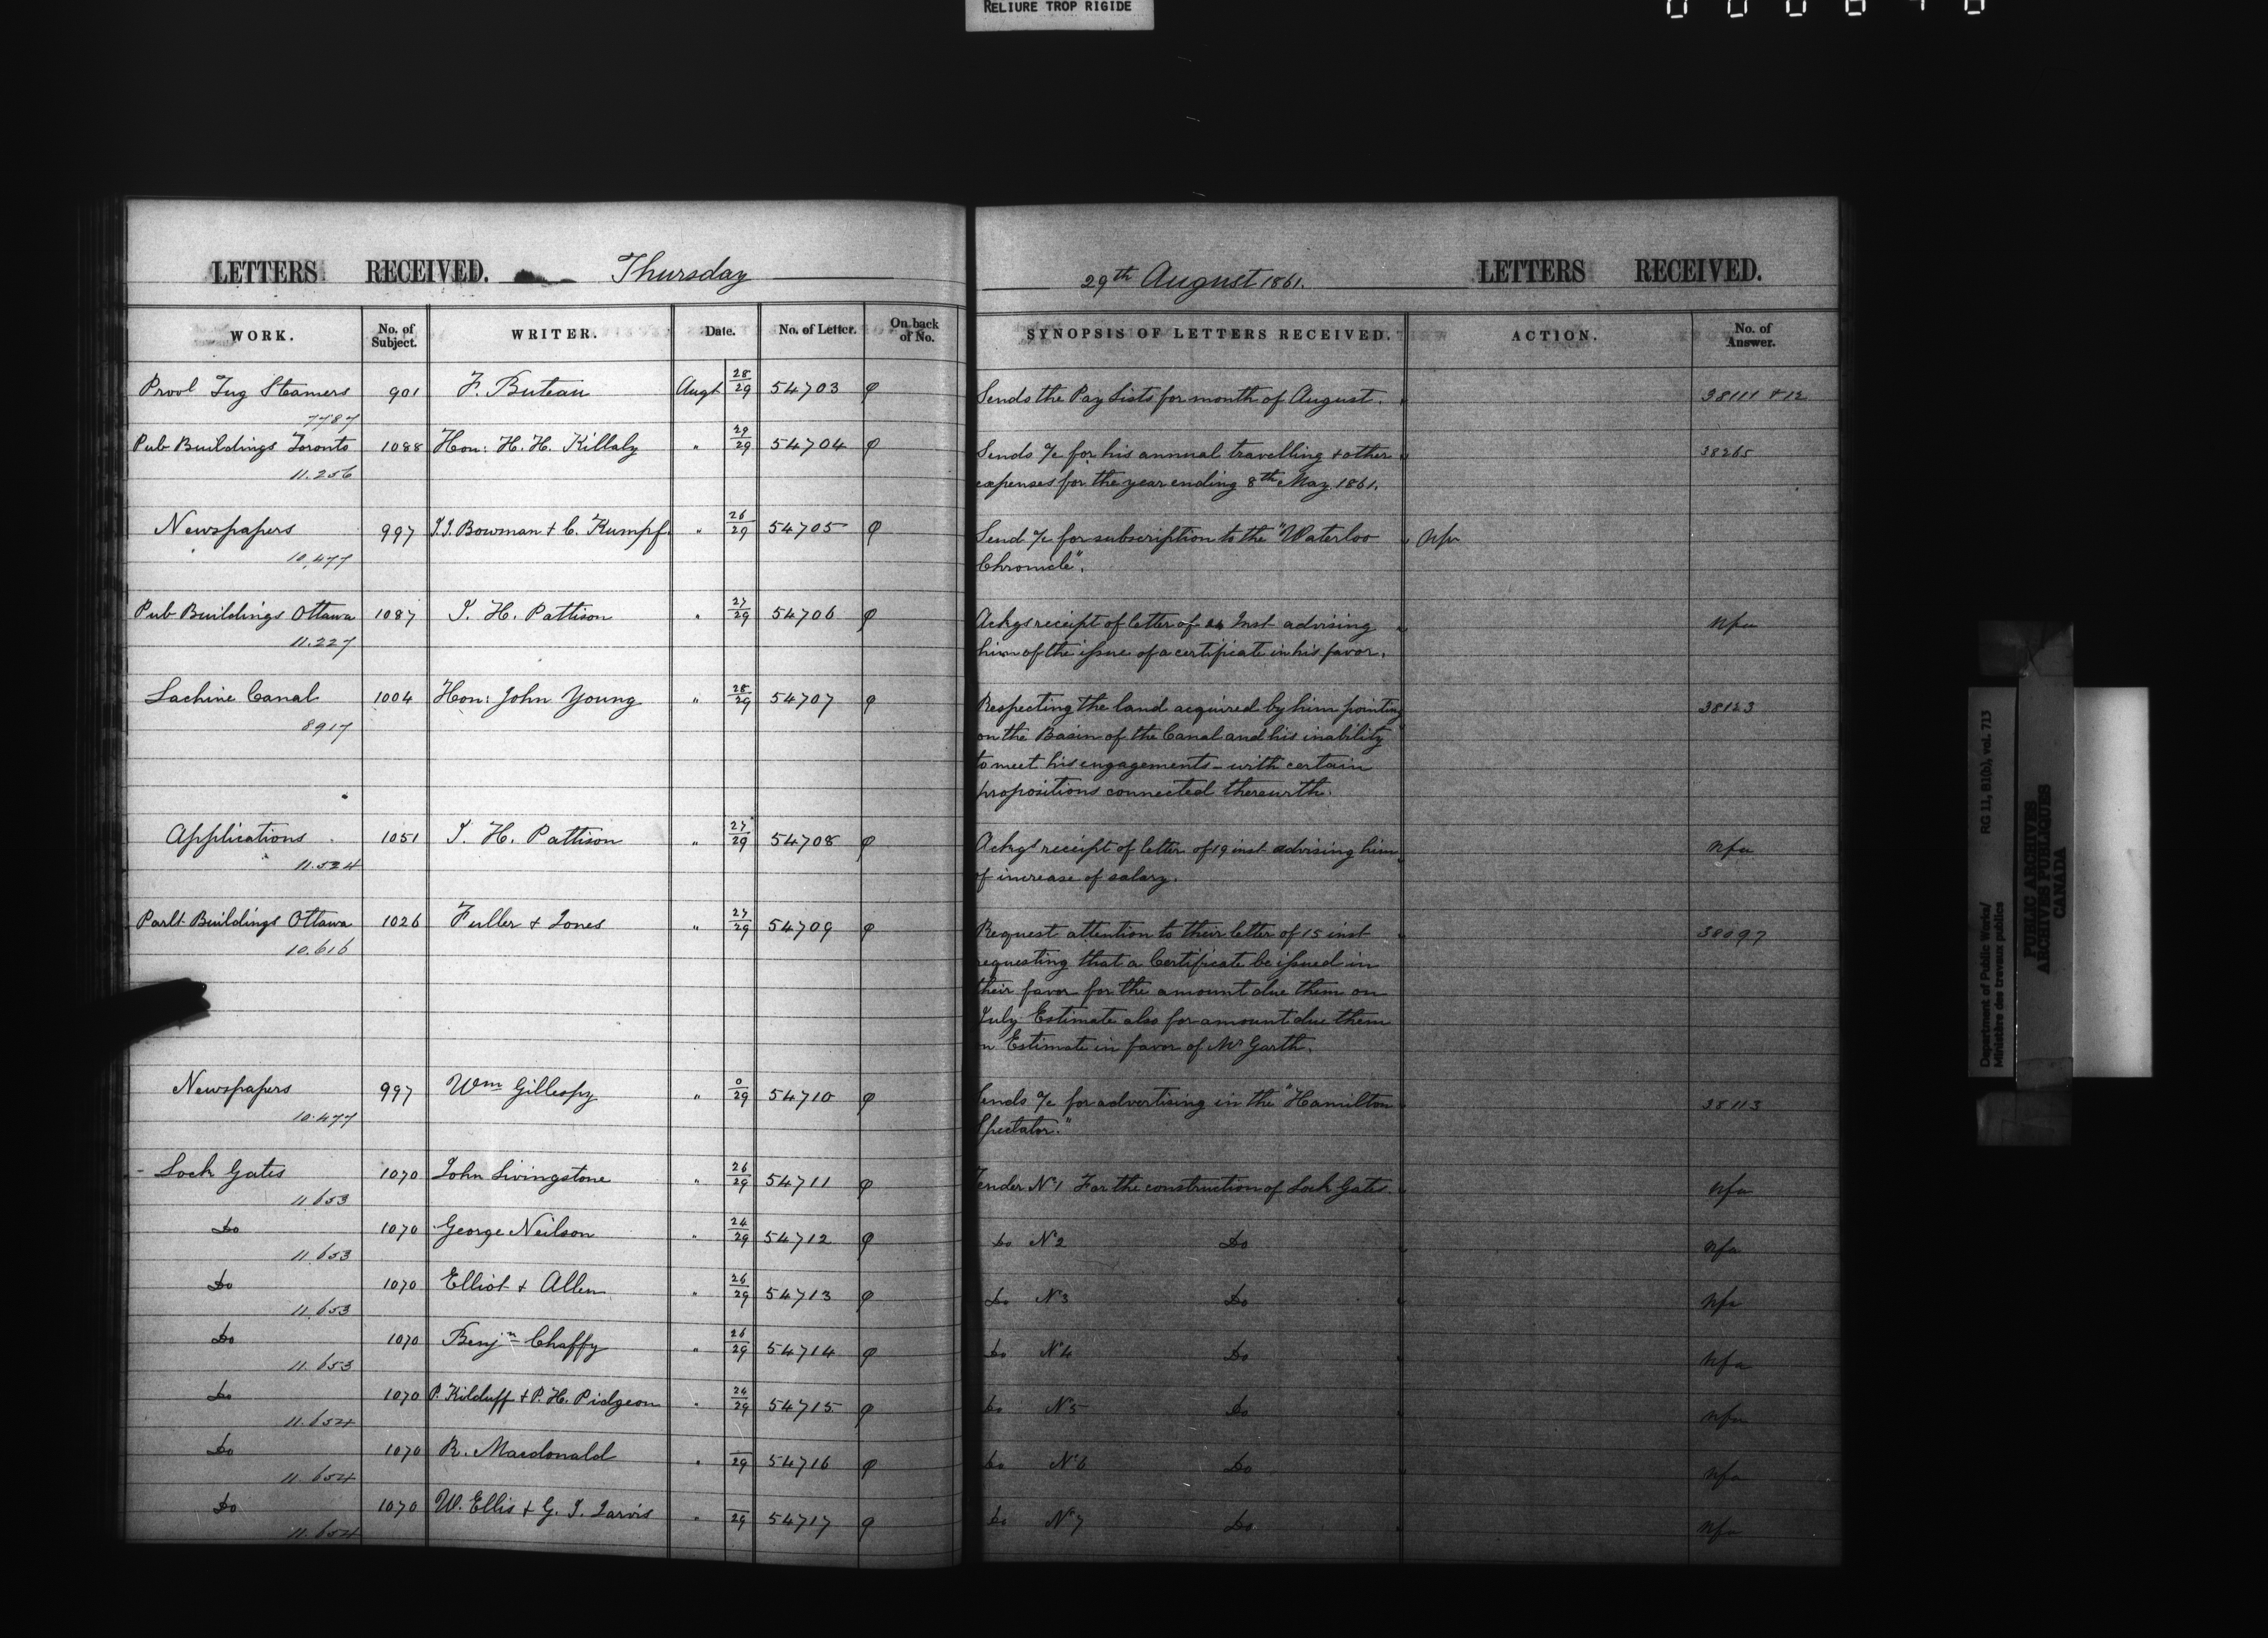 RELIURE TROP RIGIDE
LETTERS RECEIVED. Thursday
29th August 1861. LETTERS RECEIVED.
WORK. No. of Subject. WRITER. Date. No. of Letter. On back of No. SYNOPSIS OF LETTERS RECEIVED. ACTION. No. of Answer.
Provl Tug Steamers 901 F. Buteau Augt 28/29 54703 φ Sends the Pay Lists for month of August. 38111 + 12
7787
Pub Buildings Toronto 1088 Hon: H. H. Killaly " 29/29 54704 φ Sends a/c for his annual travelling + other 38265
11.256 expenses for the year ending 8th May 1861.
Newspapers 997 I. I. Bowman + C. Kumpf. " 26/29 54705 φ Send a/c for subscription to the "Waterloo " Nfa
10.477 Chronicle".
Pub Buildings Ottawa 1087 T. H. Pattison " 27/29 54706 φ Ackgs receipt of letter of 24 Inst advising Nfa
11.227 him of the issue of a certificate in his favor.
Lachine Canal 1004 Hon: John Young " 28/29 54707 φ Respecting the land acquired by him pointing 38123
8917 on the Basin of the Canal and his inability
to meet his engagements - with certain
propositions connected therewith.
Applications 1051 T. H. Pattison " 27/29 54708 φ Ackgs receipt of letter of 19 inst advising him Nfa
11.524 of increase of salary.
Parlt Buildings Ottawa 1026 Fuller + Jones " 27/29 54709 φ Request attention to their letter of 15 inst 38097
10.616 requesting that a Certificate be issued in
their favor for the amount due them on
July Estimate also for amount due them
on Estimate in favor of Mr Garth.
Newspapers 997 Wm Gillespy " 0/29 54710 φ Sends a/c for advertising in the "Hamilton 38113
10.477 Spectator."
- Lock Gates 1070 John Livingstone " 26/29 54711 φ Tender No 1 For the construction of Lock Gates. Nfa
11.653
Do 1070 George Neilson " 24/29 54712 φ Do No 2 Do Nfa
11.653
Do 1070 Elliot + Allen " 26/29 54713 φ Do No 3 Do Nfa
11.653
Do 1070 Benjn Chaffy " 26/29 54714 φ Do No 4 Do Nfa
11.653
Do 1070 P. Kilduff + P. H. Pidgeon " 24/29 54715 φ Do No 5 Do Nfa
11.654
Do 1070 R. Macdonald " /29 54716 φ Do No 6 Do Nfa
11.654
Do 1070 W. Ellis + G. I. Jarvis " /29 54717 φ Do No 7 Do Nfa
11.654
Department of Public Works/ RG 11, B1(b), vol. 713
Ministère des travaux publics
PUBLIC ARCHIVES
ARCHIVES PUBLIQUES
CANADA